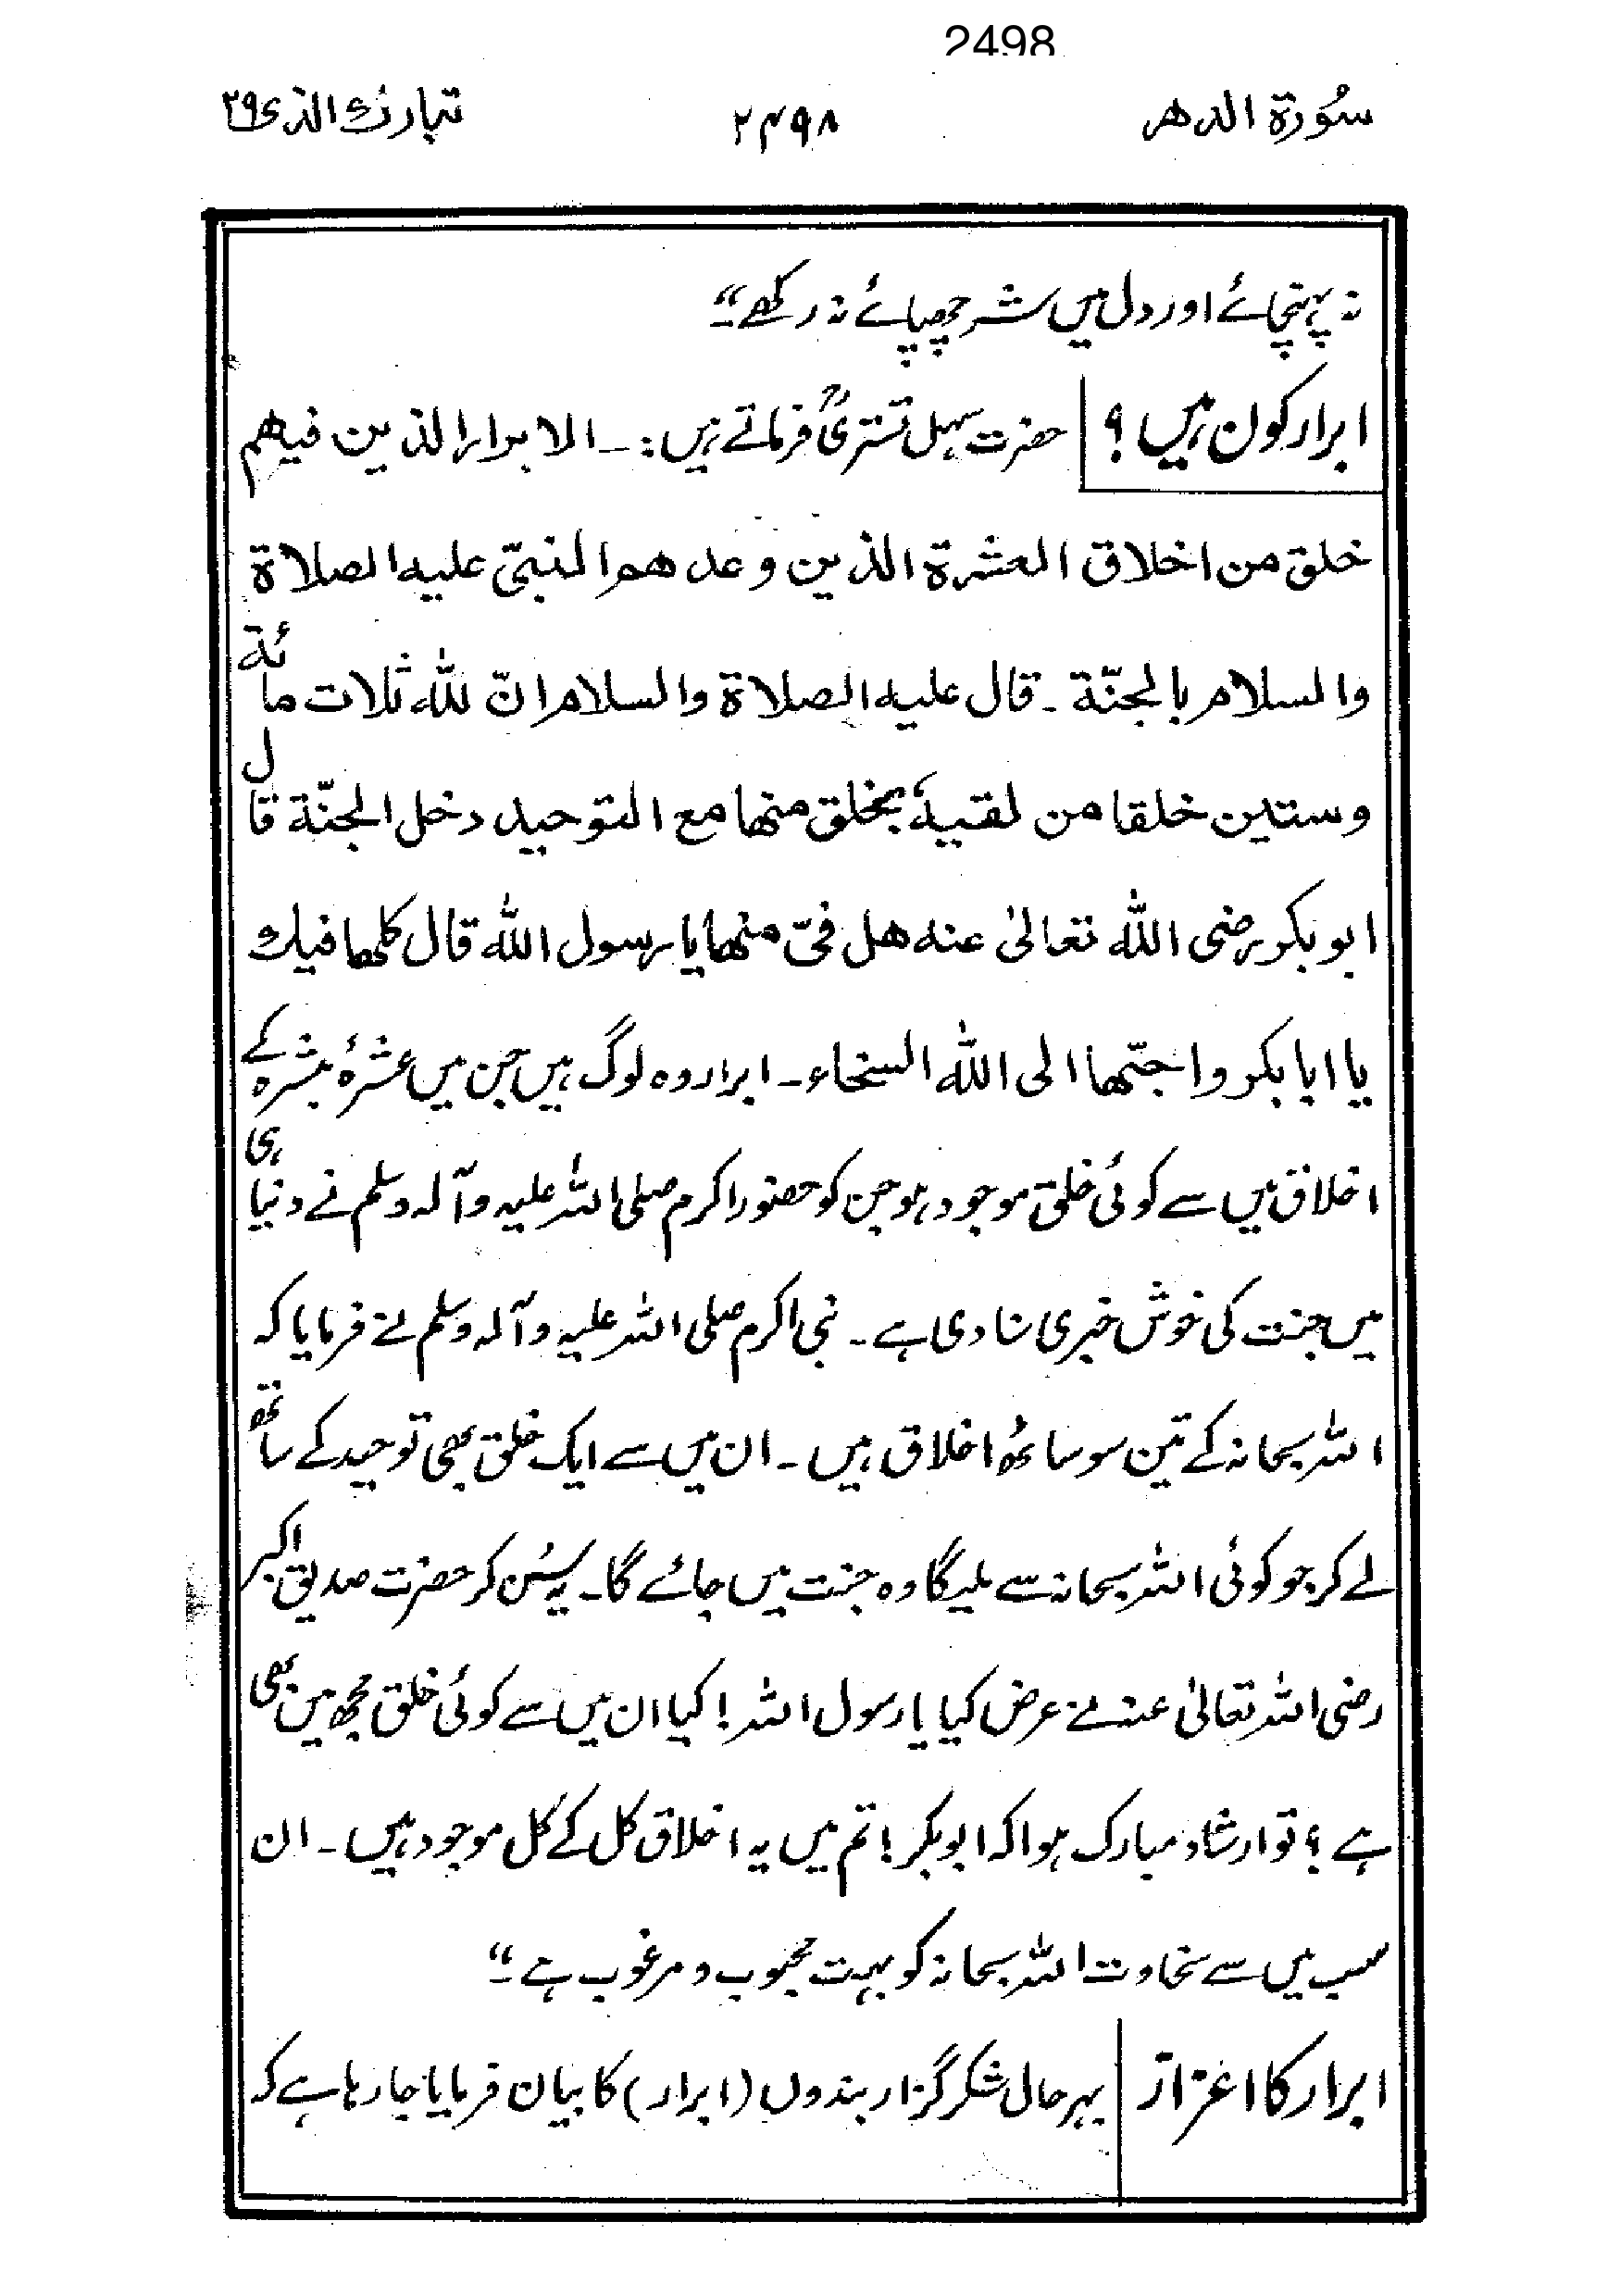 2498
سُورة الدھر ۲۴۹۸ تبارك الذی ۲۹
نہ پہنچائے اور دل میں شر چھپائے نہ رکھے۔“
ابرار کون ہیں ؟ حضرت سہل تستریؒ فرماتے ہیں :۔ الابرار الذین فیھم
خلق من اخلاق العشرۃ الذین وعدھم النبیّ علیہ الصلاۃ
والسلام بالجنّۃ ۔ قال علیہ الصلاۃ والسلام انّ للّٰہ ثلاث مائۃ
وستین خلقا من لقیہٗ بخلق منھا مع التوحید دخل الجنّۃ قال
ابوبکر رضی اللّٰہ تعالیٰ عنہ ھل فیّ منھا یا رسول اللّٰہ قال کلھا فیك
یا ابا بکر واحبّھا الی اللّٰہ السخاء ۔ ابرار وہ لوگ ہیں جن میں عشرۂ مبشرہ کے
اخلاق میں سے کوئی خلق موجود ہو جن کو حضور اکرم صلی اللہ علیہ وآلہ وسلم نے دنیا ہی
میں جنت کی خوش خبری سنا دی ہے ۔ نبی اکرم صلی اللہ علیہ وآلہ وسلم نے فرمایا کہ
اللہ سبحانہ کے تین سو ساٹھ اخلاق ہیں ۔ ان میں سے ایک خلق بھی توحید کے ساتھ
لے کر جو کوئی اللہ سبحانہ سے ملیگا وہ جنت میں جائے گا ۔ یہ سُن کر حضرت صدیق اکبر
رضی اللہ تعالیٰ عنہ نے عرض کیا یا رسول اللہ ! کیا ان میں سے کوئی خلق مجھ میں بھی
ہے ؟ تو ارشاد مبارک ہوا کہ ابوبکر ! تم میں یہ اخلاق کل کے کل موجود ہیں ۔ ان
سب میں سے سخاوت اللہ سبحانہ کو بہت محبوب و مرغوب ہے ۔“
ابرار کا اعزاز بہر حال شکر گزار بندوں (ابرار) کا بیان فرمایا جا رہا ہے کہ